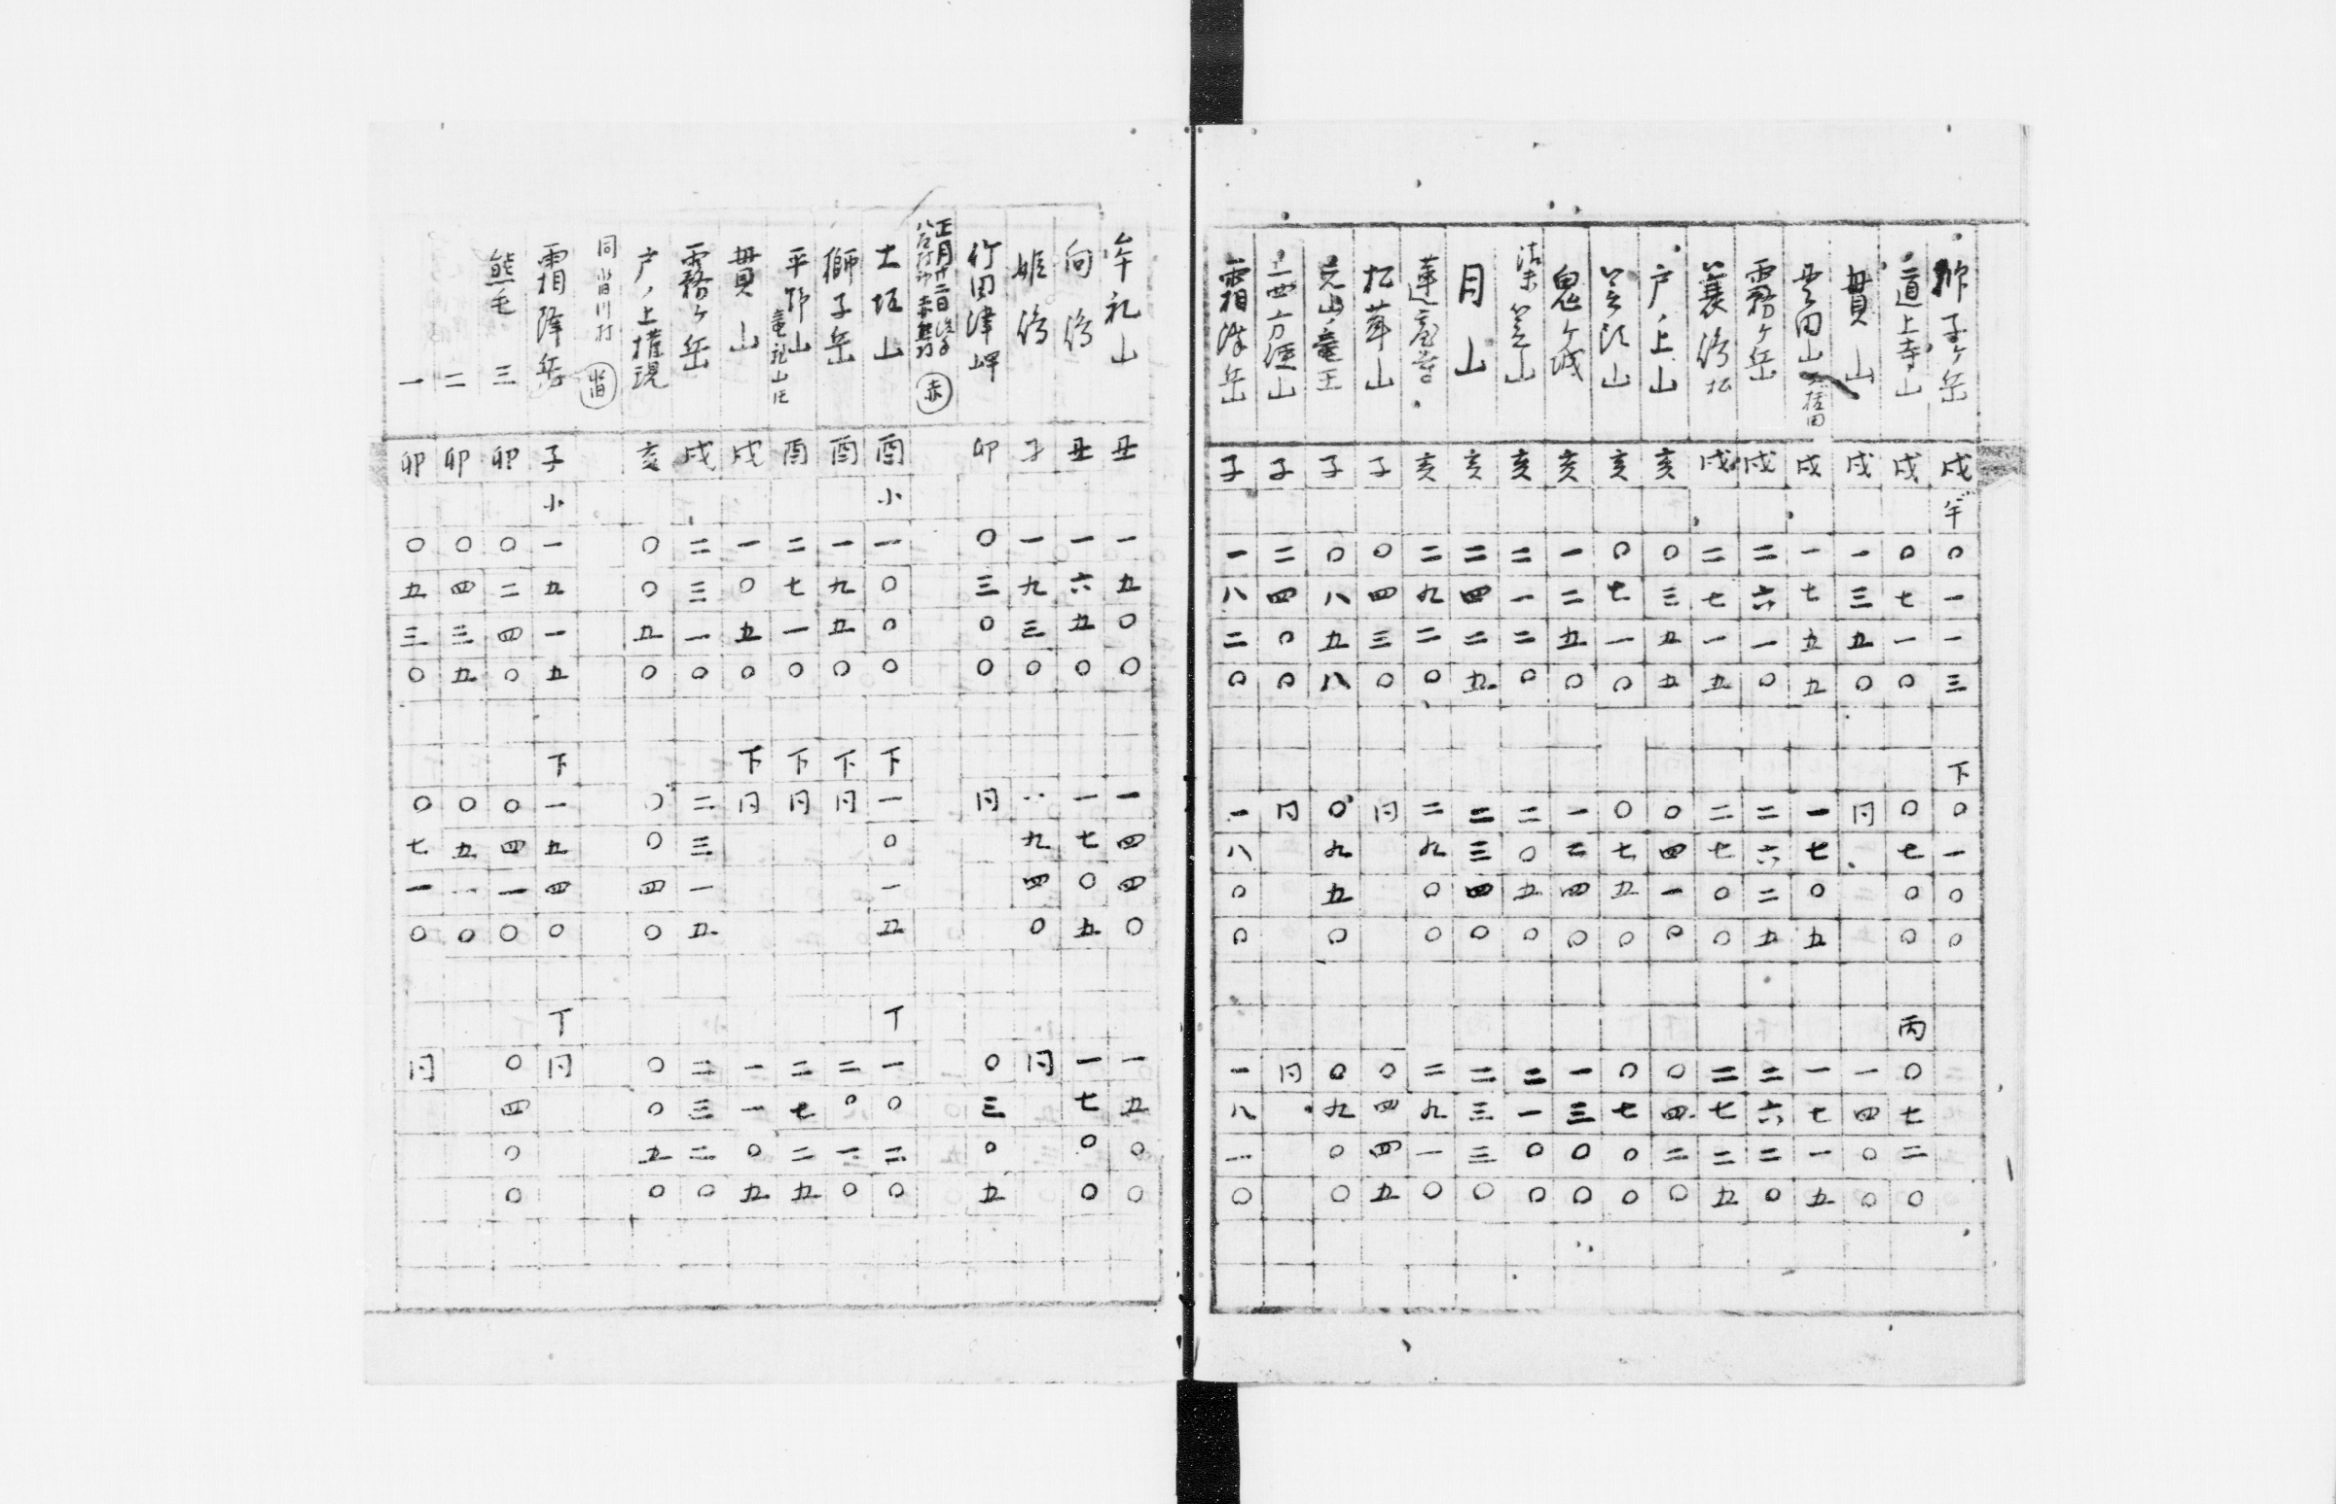 獅子ヶ岳 戌 午 〇一一三 下 〇一〇〇
道上寺山 戌 〇七一〇 〇七〇〇 丙 〇七二〇
貫山 戌 一三五〇 同 一四〇〇
山 戌 一七五五 一七〇五 一七一五
霧ヶ岳 戌 二六一〇 二六二五 二六二〇
蓑 松 戌 二七一五 二七〇〇 二七二五
戸ノ上山 亥 〇三五五 〇四一〇 〇四二〇
山 亥 〇七一〇 〇七五〇 〇七〇〇
鬼ヶ城 亥 一二五〇 一二四〇 一三〇〇
山 亥 二一二〇 二〇五〇 二一〇〇
月山 亥 二四二五 二三四〇 二三三〇
蓮 亥 二九二〇 二九〇〇 二九一〇
松 山 子 〇四三〇 同 〇四四五
竜王 子 〇八五八 〇九五〇 〇九〇〇
西方 山 子 二四〇〇 同 同
霜降岳 子 一八二〇 一八〇〇 一八一〇
牟礼山 丑 一五〇〇 一四四〇 一五〇〇
向 丑 一六五〇 一七〇五 一七〇〇
姫 子 一九三〇 一九四〇 同
竹田津 卯 〇三〇〇 同 〇三〇五
正月廿二日
赤
山 酉 小 一〇〇〇 下 一〇一五 丁 一〇二〇
獅子岳 酉 一九五〇 下 同 二〇一〇
平 山 酉 二七一〇 下 同 二七二五
貫山 戌 一〇五〇 下 同 一一〇五
霧ヶ岳 戌 二三一〇 二三一五 二三二〇
戸ノ上権現 亥 〇〇五〇 〇〇四〇 〇〇五〇
同 川村
霜降岳 子 小 一五一五 下 一五四〇 丁 同
熊毛 三 卯 〇二四〇 〇四一〇 〇四〇〇
二 卯 〇四三五 〇五一〇
一 卯 〇五三〇 〇七一〇 同